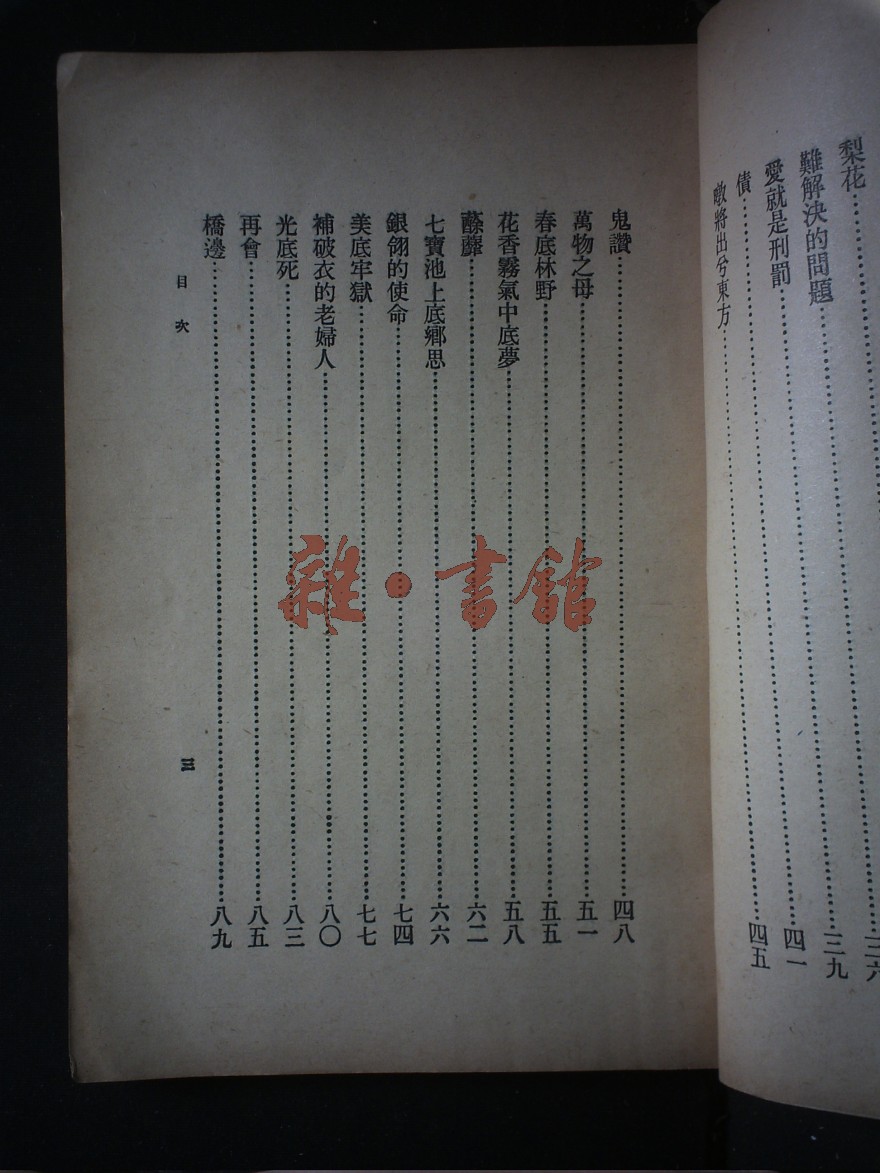 梨花……三六
難解決的問題……三九
愛就是刑罰……四一
債……四五
暾將出兮東方……
鬼讚……四八
萬物之母……五一
春底林野……五五
花香霧氣中底夢……五八
荼蘼……六二
七寶池上底鄉思……六六
銀翎的使命……七四
美底牢獄……七七
補破衣的老婦人……八〇
光底死……八三
再會……八五
橋邊……八九
目次
三
雜·書館